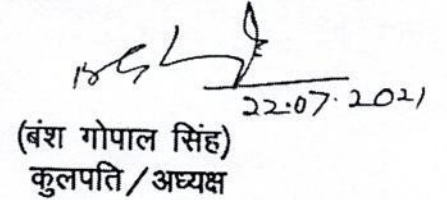 22.07.2021
(बंश गोपाल सिंह)
कुलपति/अघ्यक्ष